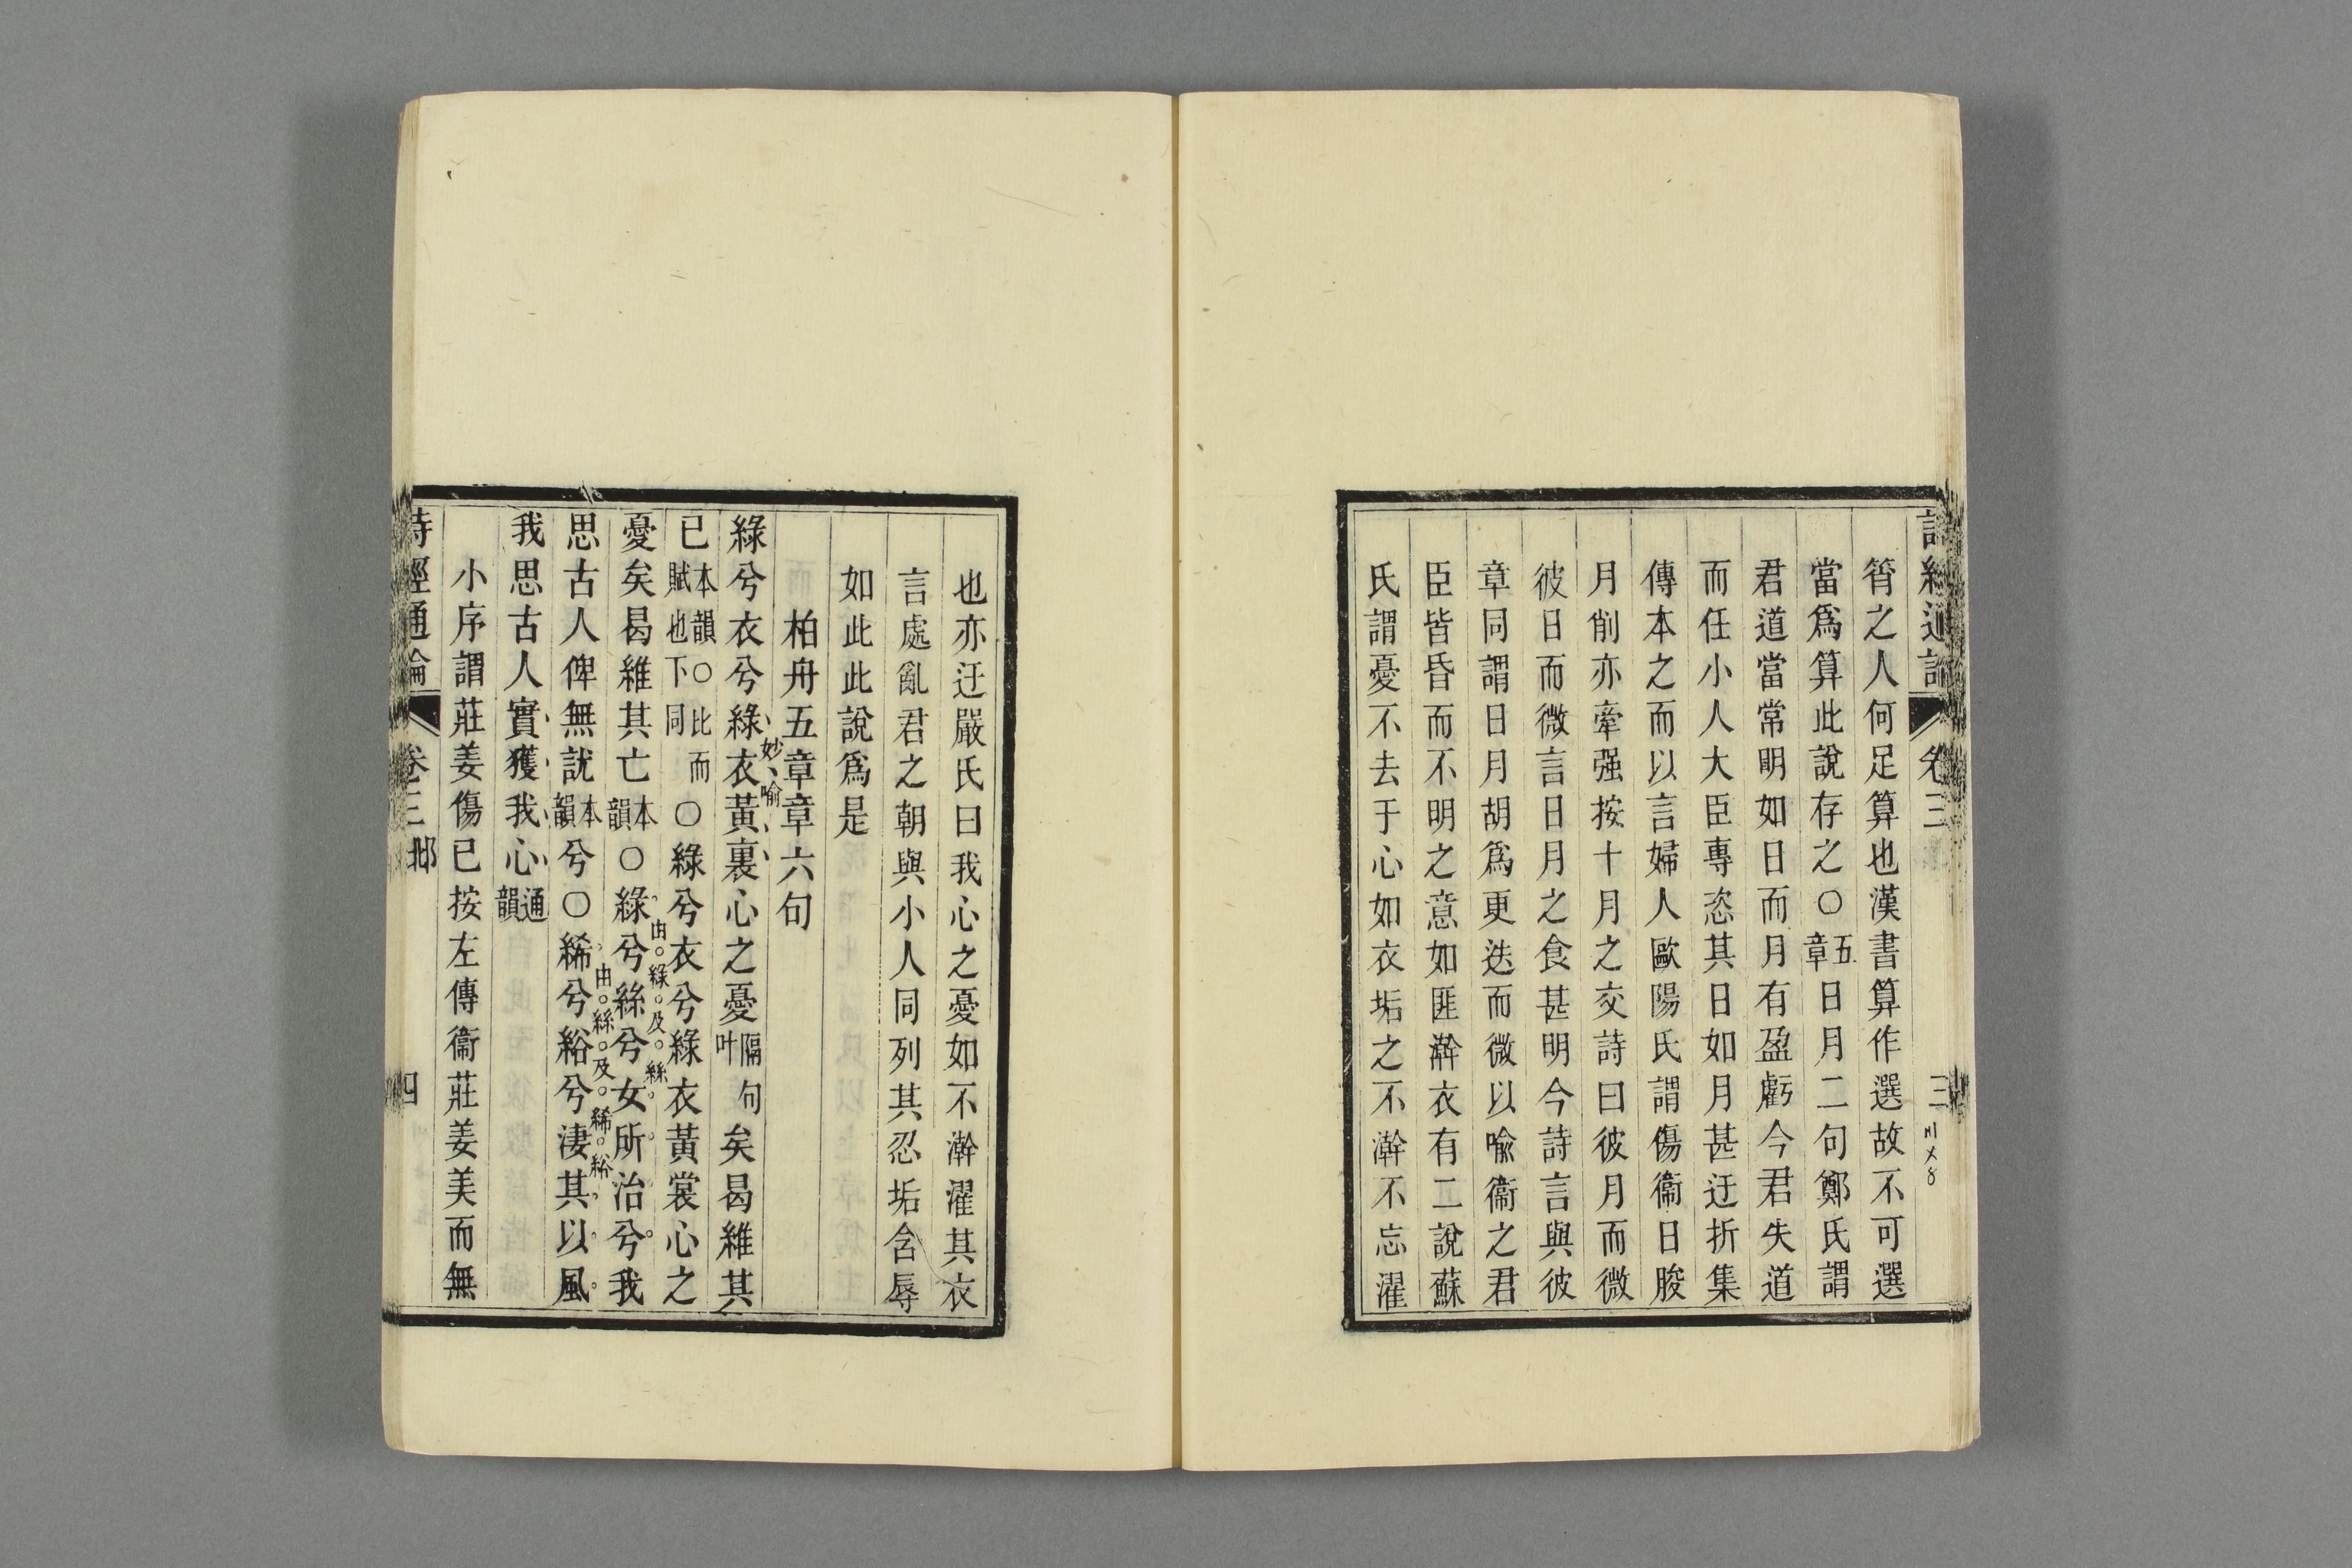 詩經通論 卷三 三
筲之人何足算也漢書算作選故不可選
當爲算此說存之〇五章日月二句鄭氏謂
君道當常明如日而月有盈虧今君失道
而任小人大臣專恣其日如月甚迂折集
傳本之而以言婦人歐陽氏謂傷衞日朘
月削亦牽强按十月之交詩曰彼月而微
彼日而微言日月之食甚明今詩言與彼
章同謂日月胡爲更迭而微以喻衞之君
臣皆昏而不明之意如匪澣衣有二說蘇
氏謂憂不去于心如衣垢之不澣不忘濯
也亦迂嚴氏曰我心之憂如不澣濯其衣
言處亂君之朝與小人同列其忍垢含辱
如此此說爲是
柏舟五章章六句
綠兮衣兮綠衣黃裏心之憂隔句叶矣曷維其
妙喻
已本韻〇比而賦也下同〇綠兮衣兮綠衣黃裳心之
憂矣曷維其亡本韻〇綠兮絲兮女所治兮我
由綠及絲
思古人俾無訧本韻兮〇絺兮綌兮淒其以風
由絲及絺綌
我思古人實獲我心通韻
小序謂莊姜傷已按左傳衞莊姜美而無
詩經通論 卷三 邶 四